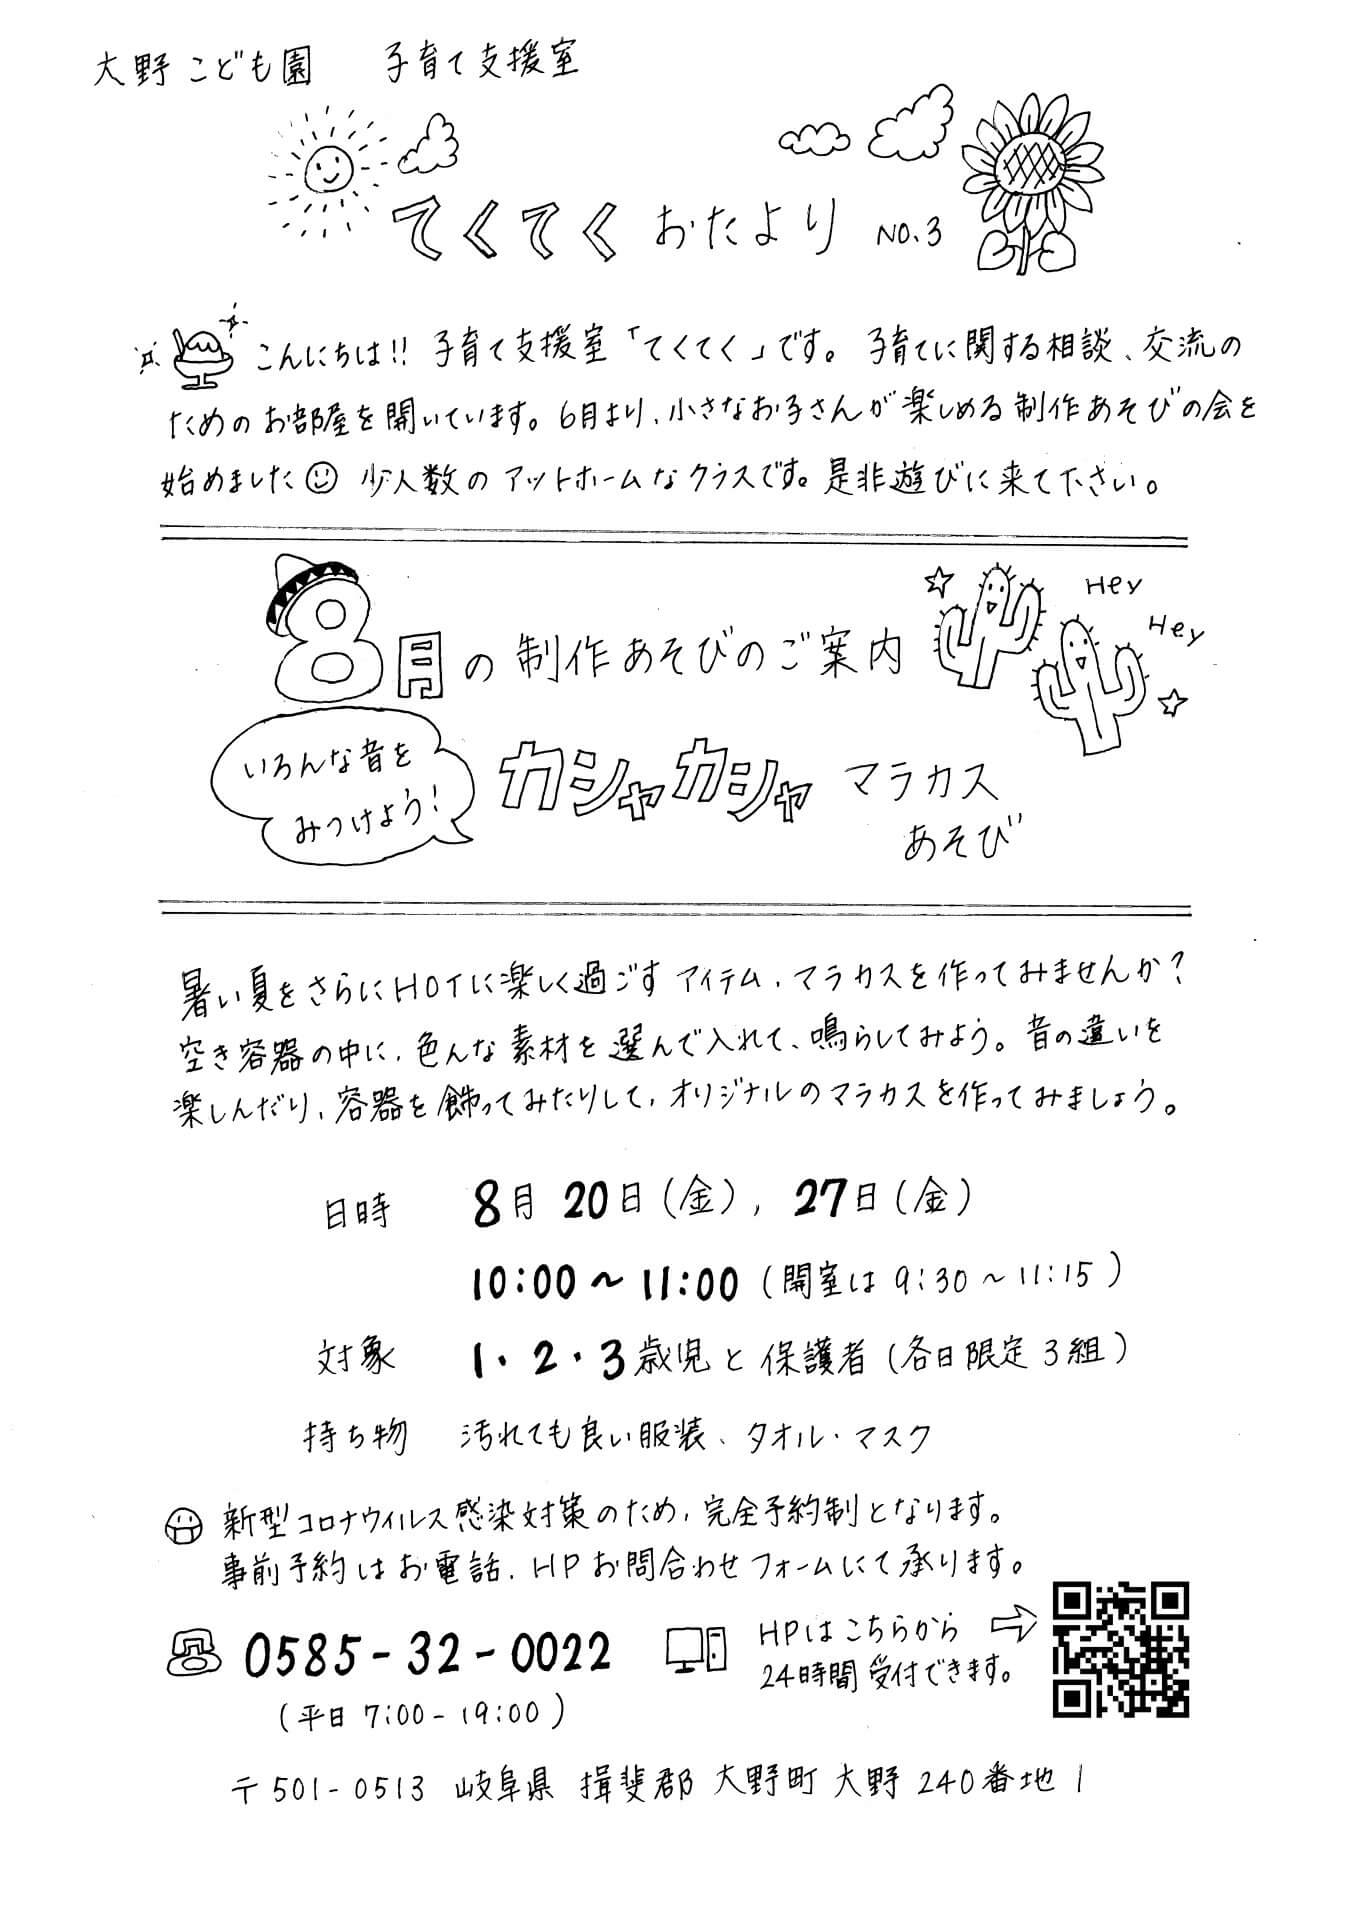 大野こども園 子育て支援室
てくてくおたより NO.3
こんにちは!! 子育て支援室「てくてく」です。子育てに関する相談、交流の
ためのお部屋を開いています。6月より、小さなお子さんが楽しめる制作あそびの会を
始めました 少人数のアットホームなクラスです。是非遊びに来て下さい。
8月の制作あそびのご案内
Hey
Hey
いろんな音を
みつけよう!
カシャカシャ マラカス
あそび
暑い夏をさらにHOTに楽しく過ごすアイテム、マラカスを作ってみませんか?
空き容器の中に、色んな素材を選んで入れて、鳴らしてみよう。音の違いを
楽しんだり、容器を飾ってみたりして、オリジナルのマラカスを作ってみましょう。
日時 8月20日(金), 27日(金)
10:00~11:00(開室は9:30~11:15)
対象 1・2・3歳児と保護者(各日限定3組)
持ち物 汚れても良い服装、タオル・マスク
新型コロナウイルス感染対策のため、完全予約制となります。
事前予約はお電話、HPお問合わせフォームにて承ります。
0585-32-0022
(平日 7:00-19:00)
HPはこちらから
24時間受付できます。
〒501-0513 岐阜県 揖斐郡 大野町 大野 240番地1